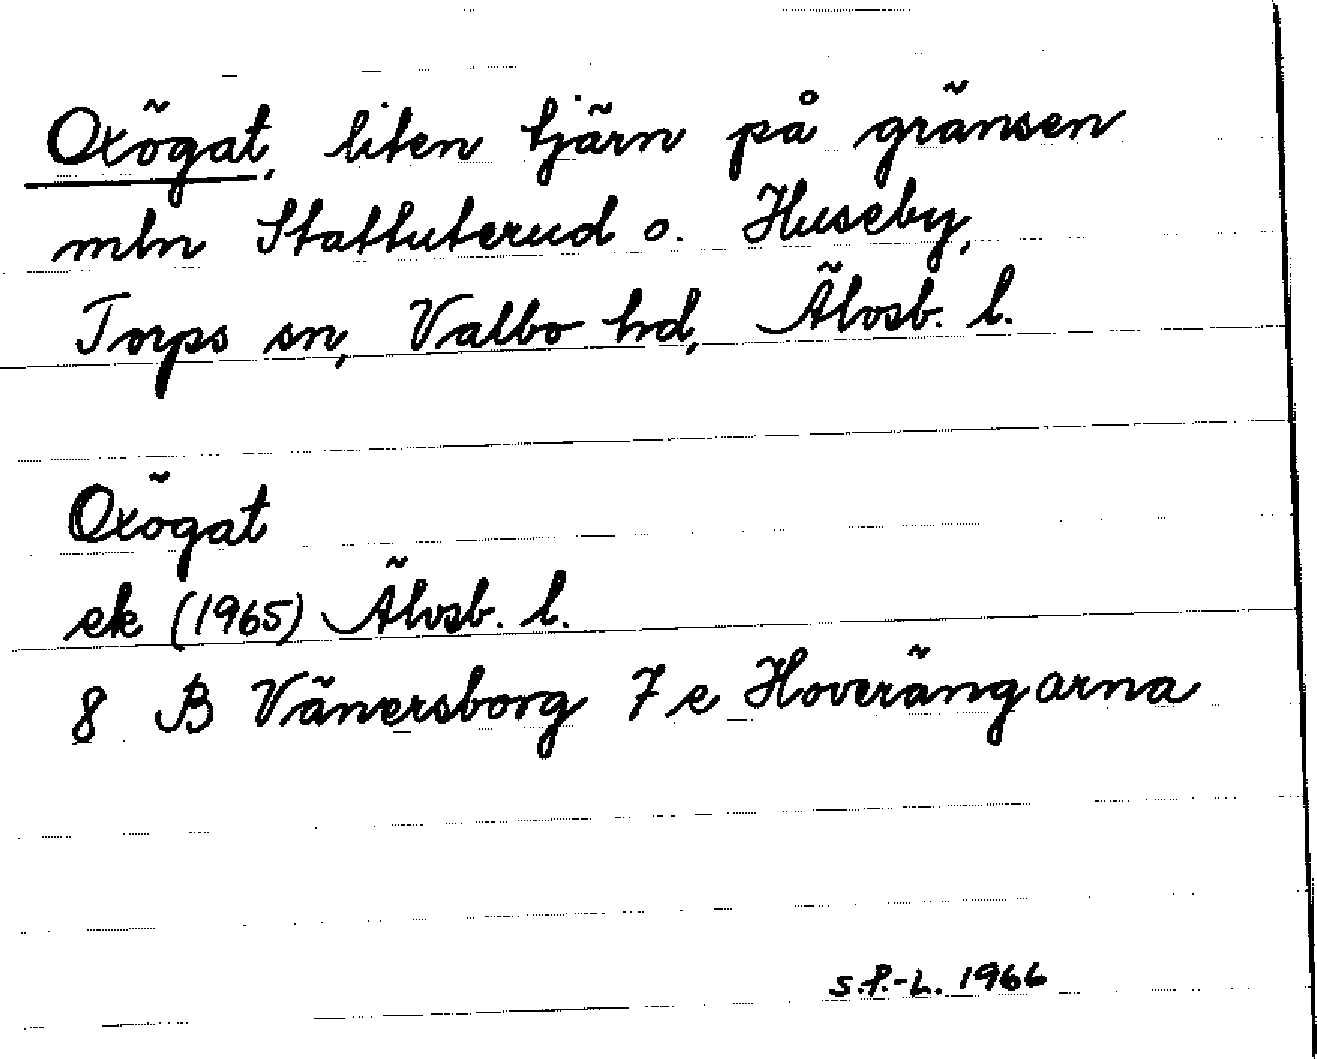 Oxögat, liten tjärn på gränsen
mln Stattuterud o. Huseby,
Torps sn, Valbo hd, Älvsb. l.
Oxögat
ek (1965) Älvsb. l.
8 B Vänersborg 7 e Hoverängarna
S.P.-L. 1966